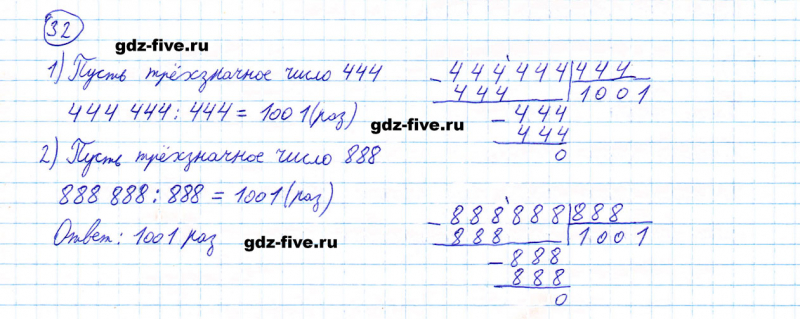 32
gdz-five.ru
1) Пусть трёхзначное число 444
444 444 : 444 = 1001 (раз)
2) Пусть трёхзначное число 888
888 888 : 888 = 1001 (раз)
Ответ: 1001 раз
gdz-five.ru
444'444 444
- 444 1001
gdz-five.ru
- 444
444
0
888'888 888
- 888 1001
- 888
888
0